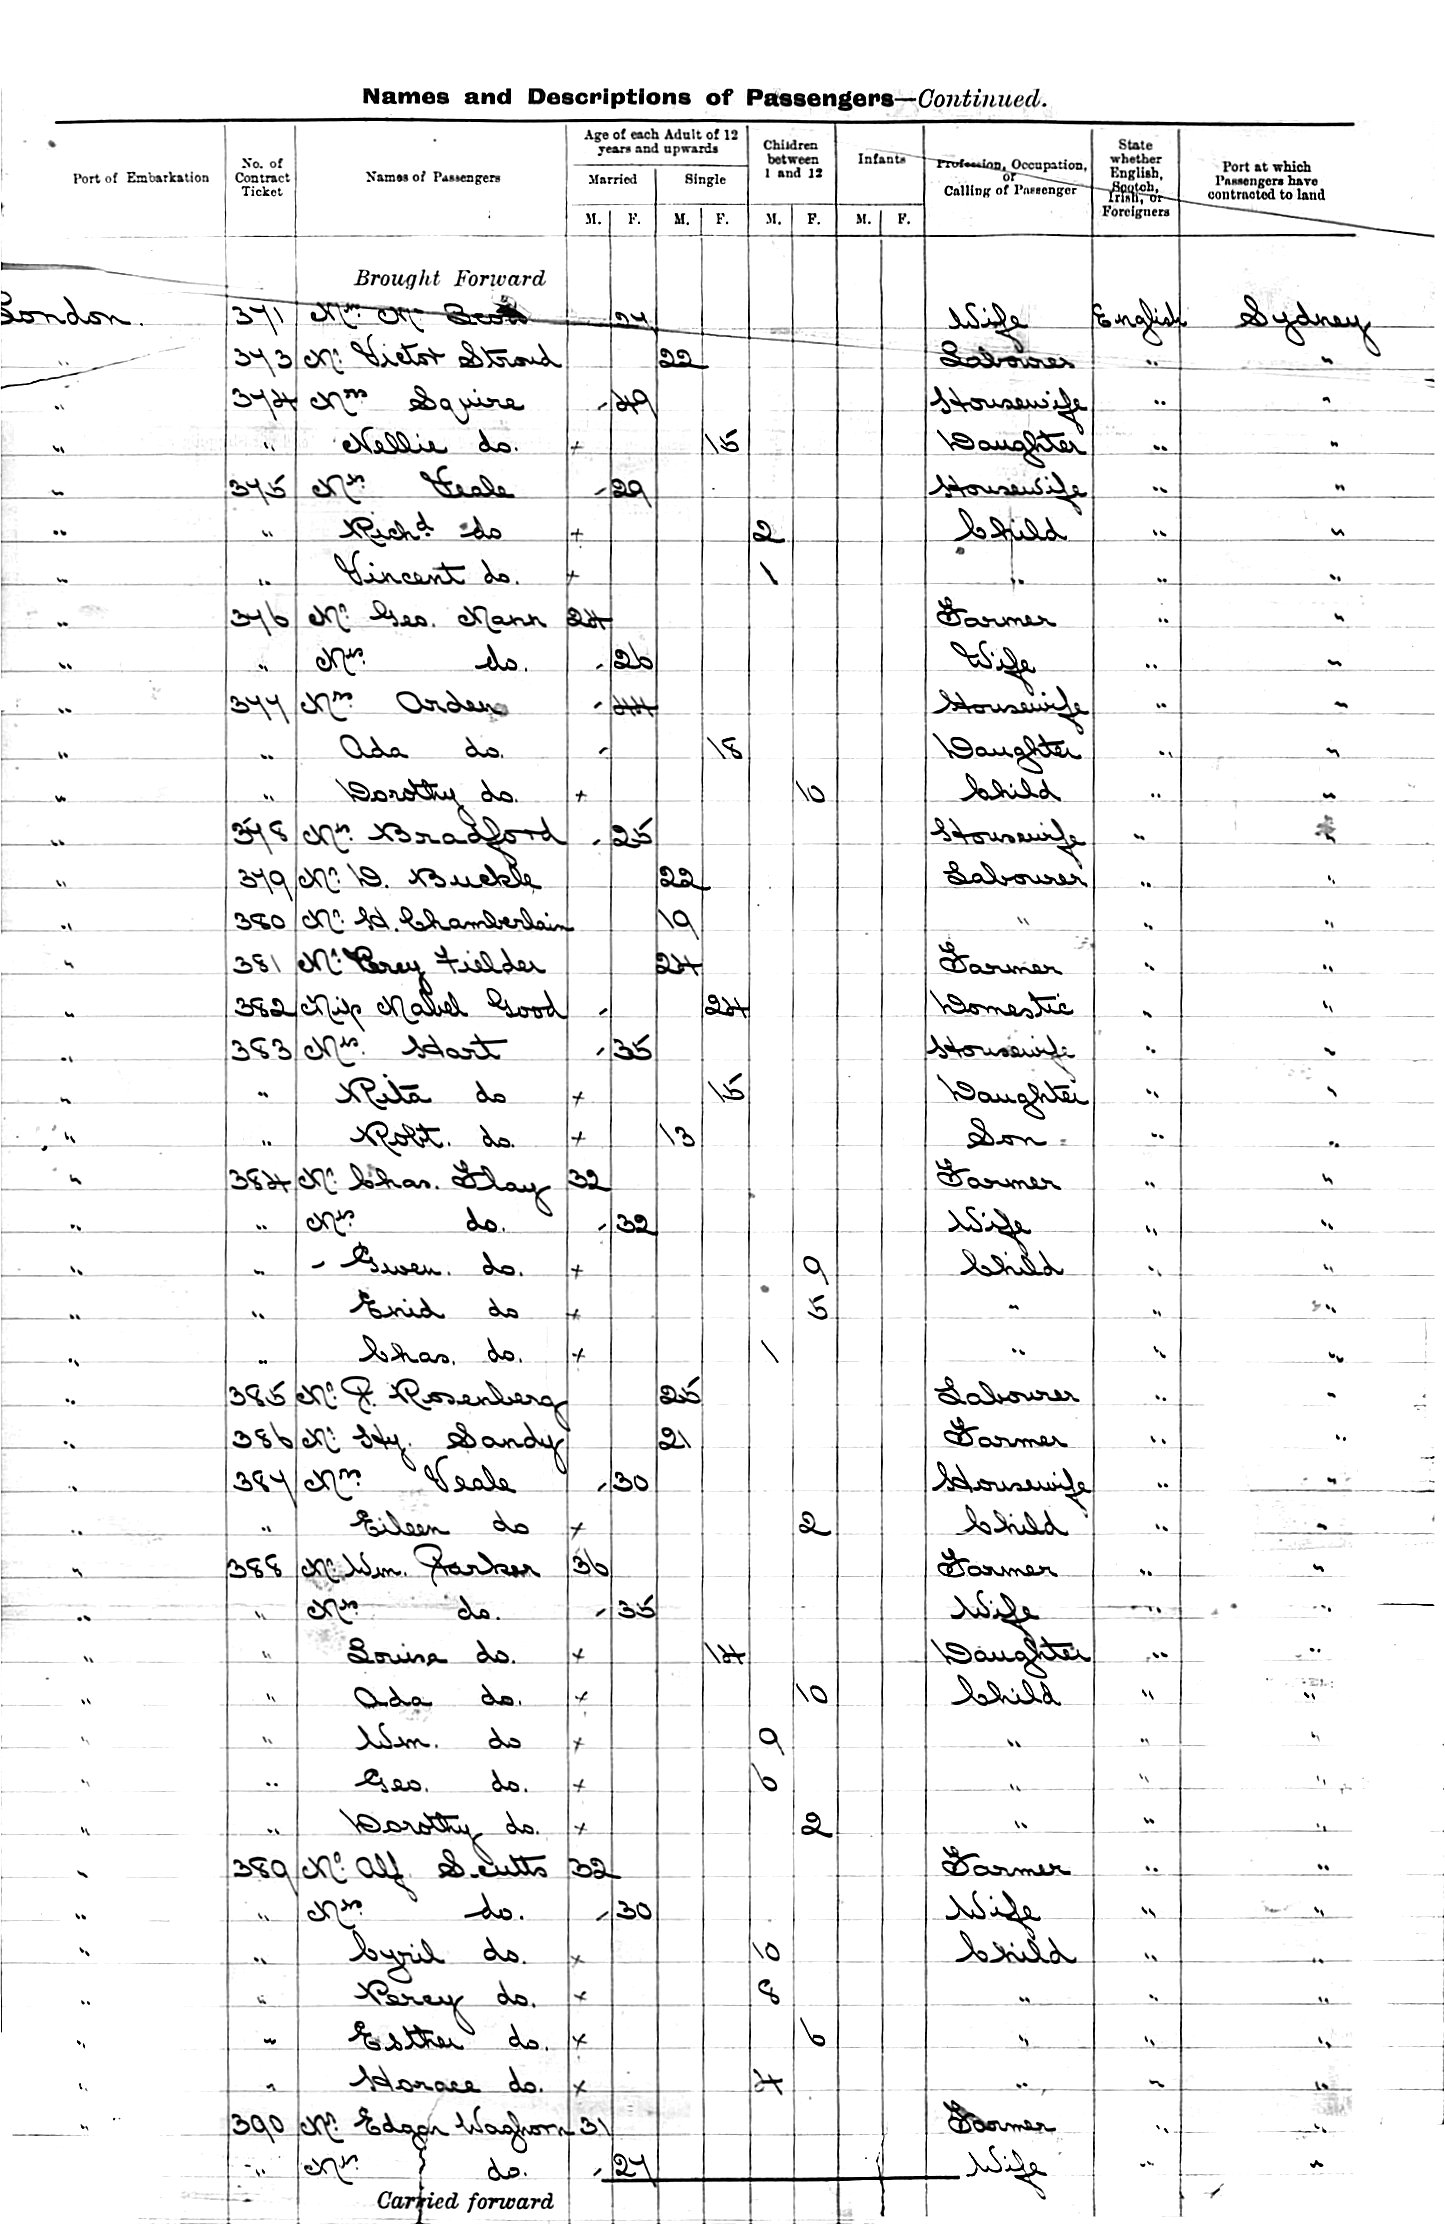 Names and Descriptions of Passengers—Continued.
Port of Embarkation | No. of Contract Ticket | Names of Passengers | Age of each Adult of 12 years and upwards | Children between 1 and 12 | Infants | Profession, Occupation, or Calling of Passenger | State whether English, Scotch, Irish, or Foreigners | Port at which Passengers have contracted to land
Married | Single
M. | F. | M. | F. | M. | F. | M. | F.
Brought Forward
London. | 371 | Mrs. | 27 | Wife | English | Sydney
" | 373 | Mr. Victor Stroud | 22 | Labourer | " | "
" | 374 | Mrs Squire | - 49 | Housewife | " | "
" | " | Nellie do. | + | 15 | Daughter | " | "
" | 375 | Mrs. Veale | - 29 | Housewife | " | "
" | " | Richd do | + | 2 | Child | " | "
" | " | Vincent do. | + | 1 | " | " | "
" | 376 | Mr. Geo. Mann | 24 | Farmer | " | "
" | " | Mrs. do. | - 26 | Wife | " | "
" | 377 | Mrs Arden | - 44 | Housewife | " | "
" | " | Ada do. | - | 18 | Daughter | " | "
" | " | Dorothy do. | + | 10 | Child | " | "
" | 378 | Mrs. Bradford | - 25 | Housewife | " | "
" | 379 | Mr. D. Buckle | 22 | Labourer | " | "
" | 380 | Mr. H. Chamberlain | 19 | " | " | "
" | 381 | Mr. Percy Fielder | 24 | Farmer | " | "
" | 382 | Miss Mabel Good | - | 24 | Domestic | " | "
" | 383 | Mrs. Hart | - 35 | Housewife | " | "
" | " | Rita do | + | 15 | Daughter | " | "
" | " | Robt. do. | + | 13 | Son | " | "
" | 384 | Mr. Chas. Flay | 32 | Farmer | " | "
" | " | Mrs. do. | - 32 | Wife | " | "
" | " | - Gwen. do. | + | 9 | Child | " | "
" | " | Enid do | + | 5 | " | " | "
" | " | Chas. do. | + | 1 | " | " | "
" | 385 | Mr. Rosenberg | 25 | Labourer | " | "
" | 386 | Mr. Hy. Sandy | 21 | Farmer | " | "
" | 387 | Mrs Veale | - 30 | Housewife | " | "
" | " | Eileen do | + | 2 | Child | " | "
" | 388 | Mr. Wm. Parker | 36 | Farmer | " | "
" | " | Mrs do. | - 35 | Wife | " | "
" | " | Louisa do. | + | 14 | Daughter | " | "
" | " | Ada do. | + | 10 | Child | " | "
" | " | Wm. do | + | 9 | " | " | "
" | " | Geo. do. | + | 6 | " | " | "
" | " | Dorothy do. | + | 2 | " | " | "
" | 389 | Mr. Alf. S. cutts | 32 | Farmer | " | "
" | " | Mrs. do. | - 30 | Wife | " | "
" | " | Cyril do. | + | 10 | Child | " | "
" | " | Percy do. | + | 8 | " | " | "
" | " | Esther do. | + | 6 | " | " | "
" | " | Horace do. | + | 4 | " | " | "
" | 390 | Mr. Edgar Waghorn | 31 | Farmer | " | "
" | Mrs. do. | - 27 | Wife | " | "
Carried forward